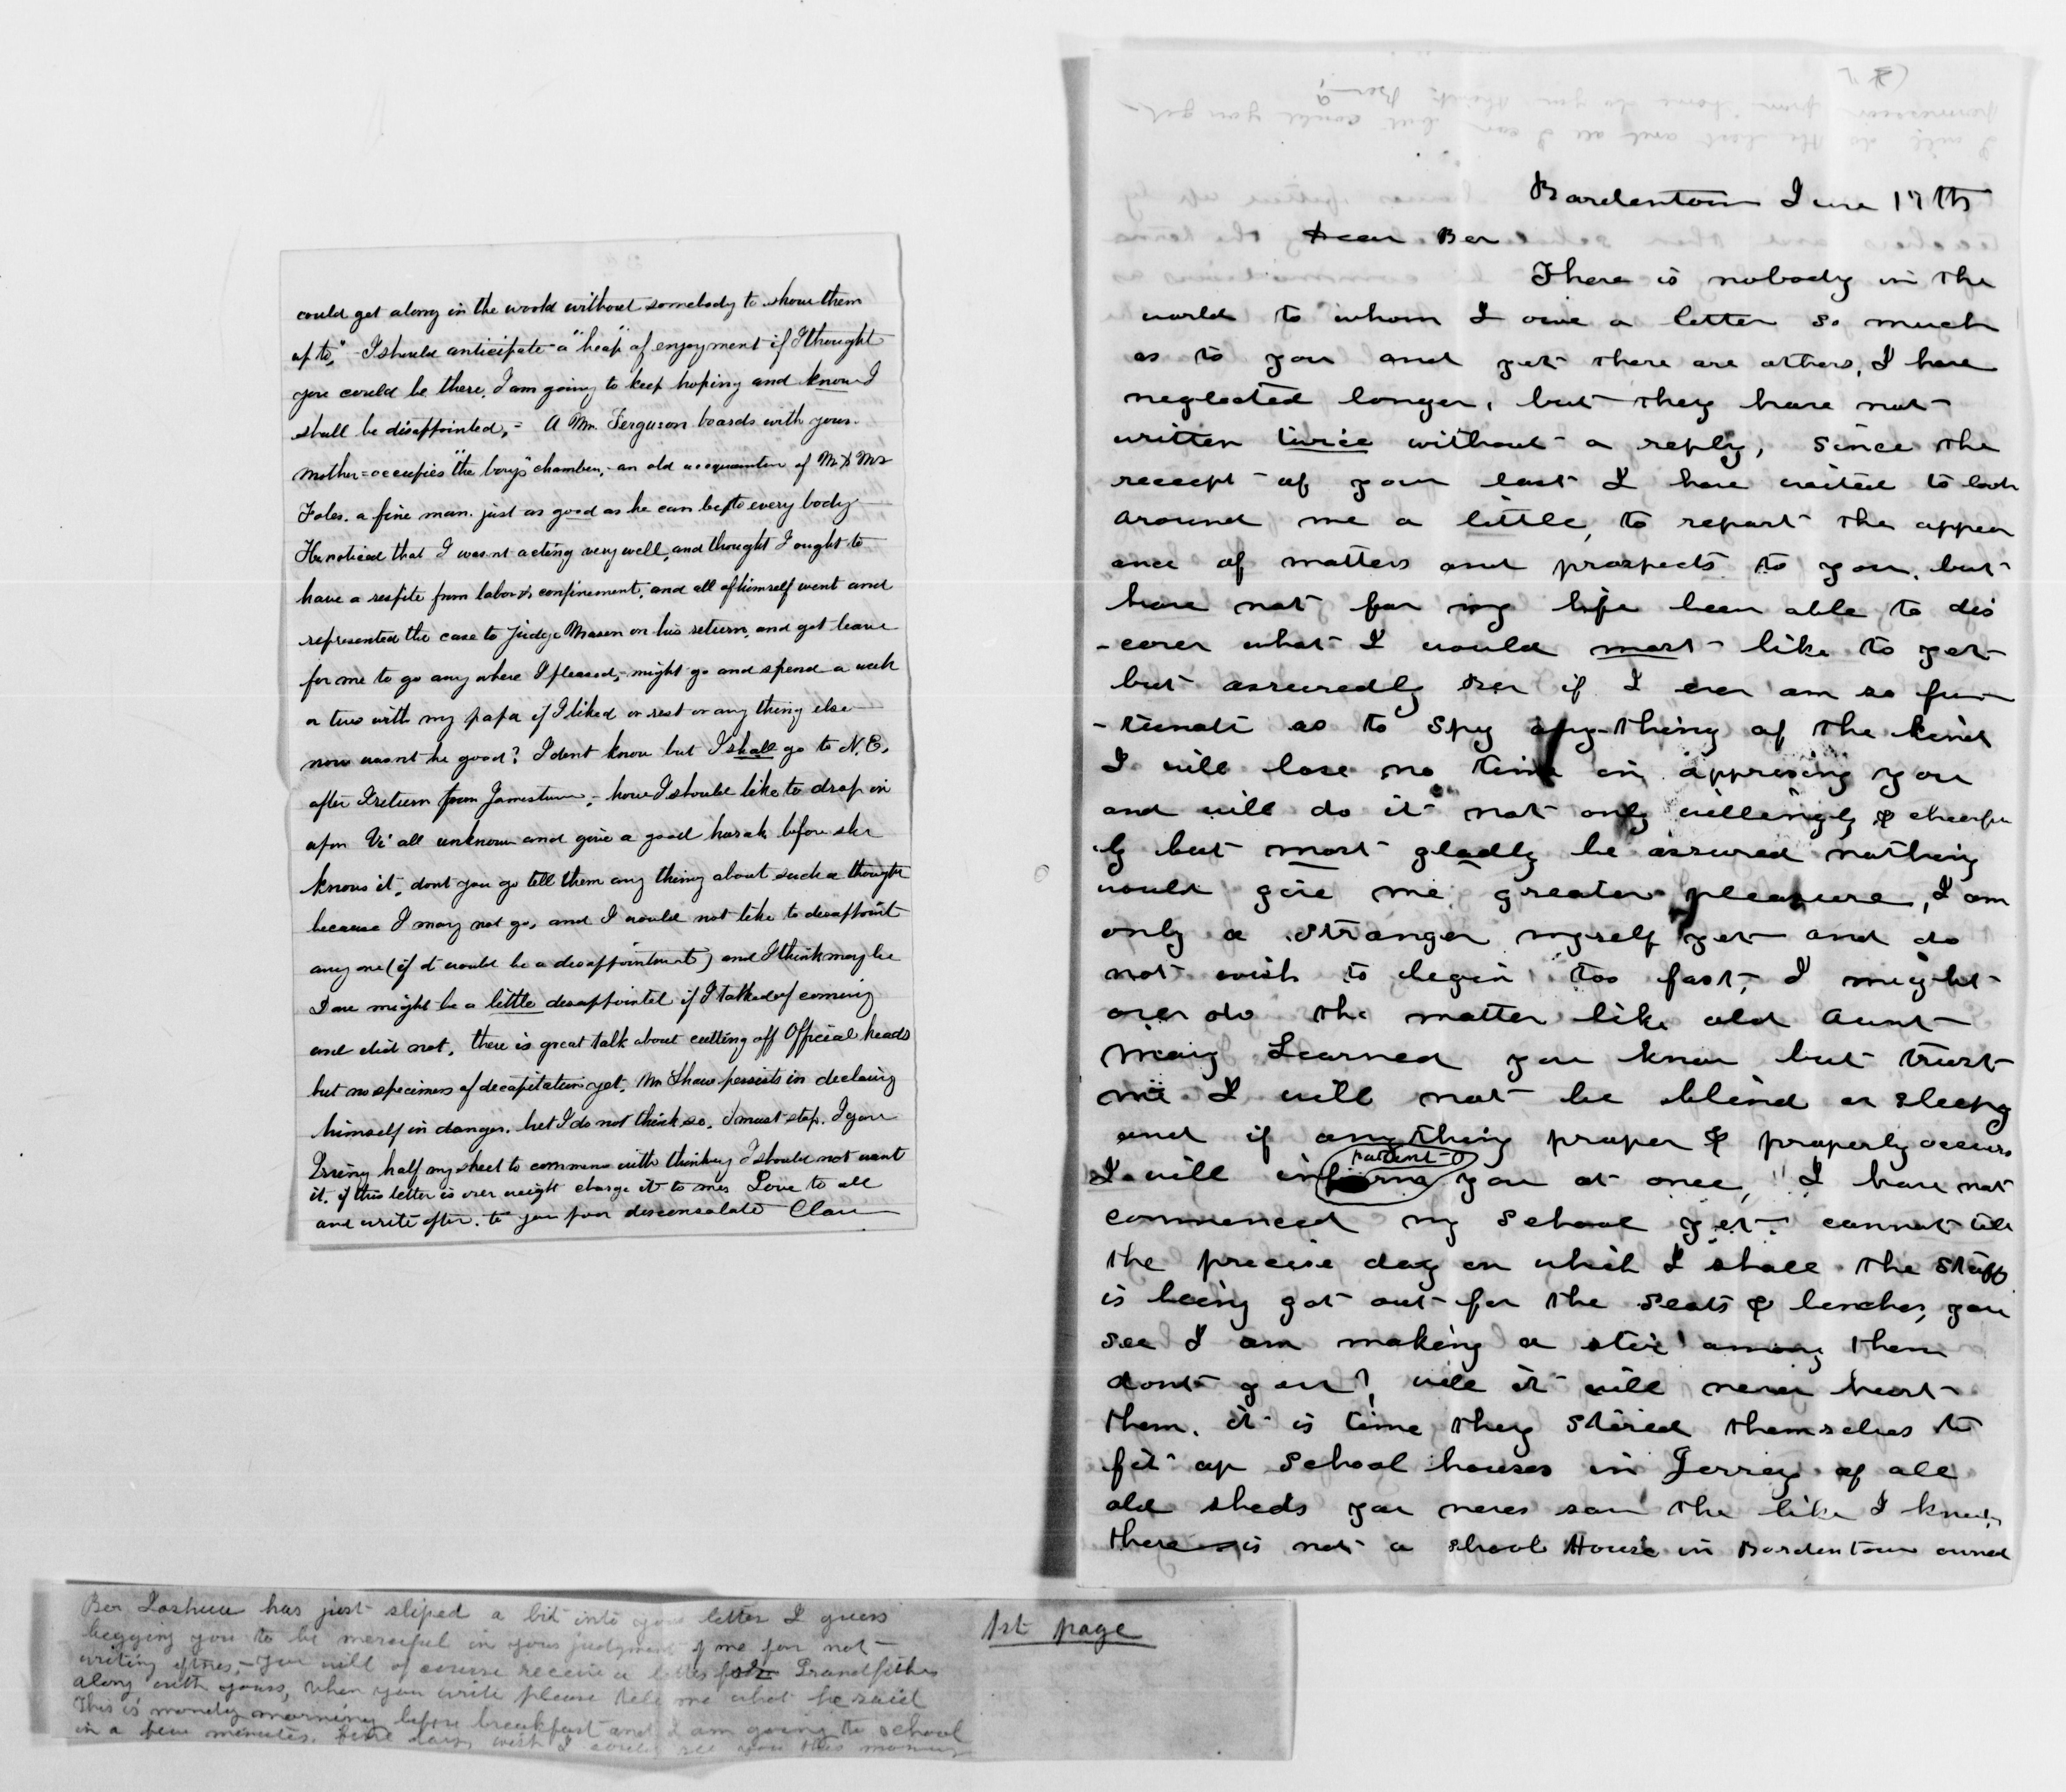 could get along in the world without somebody to show them
up to," I should anticipate a "heap" of enjoyment if I thought
you could be there, I am going to keep hoping and know I
shall be disappointed, = A Mr. Ferguson boards with your
mother = occupies "the boys" chamber, - an old acquaintance of Mr & Mrs
Fales. a fine man. just as good as he can be to every body
He noticed that I was nt acting very well, and thought I ought to
have a respite from labor & confinement, and all of himself went and
represented the case to Judge Mason on his return, and got leave
for me to go any where I pleased, - might go and spend a week
or two with my papa if I liked or rest or any thing else
now wasnt he good? I dont know but I shall go to N.E.
after I return from Jamestown, - how I should like to drop in
upon Vi all unknown and give a good hurah before she
knows it, dont you go tell them any thing about such a thought
because I may not go, and I would not like to disappoint
any one (if it would be a disappointment) and I think may be
Dave might be a little disappointed if I talked of coming
and did not, there is great talk about cutting off Official heads
but no specimens of decapitation yet. Mr Shaw persists in declaring
himself in danger, but I do not think so, I must stop. I gave
Irving half my sheet to commence with thinking I should not want
it. if this letter is over weight charge it to me, Love to all
and write often. to your poor disconsolate Clara
Bordentown June 17th
Dear Ber
There is nobody in the
world to whom I owe a letter so much
as to you and yet there are others, I have
neglected longer, but they have not
written twice without a reply, Since the
receept of your last I have waited to look
around me a little, to report the appear
ance of matters and prospects to you, but
have not for my life been able to dis
-cover what I would most like to get
but assuredly Ber if I ever am so for
-tunate as to spy any-thing of the kind
I will lose no time in apprising you
and will do it not only willingly & cheerful
ly but most gladly be assured nothing
would give me greater pleasure, I am
only a stranger myself yet and do
not wish to begin too fast, I might
over do the matter like old Aunt
Mary Learned you know but trust
me I will not be blind or sleepy
and if anything proper & properly occurs
patent
I will inform you at once, " I have not
commenced my school yet cannot tell
the precise day on which I shall the stuff
is being got out for the seats & benches, you
see I am making a stir among them
dont you? well it will never hurt
them, it is time they stired themselves to
fit up school houses in Jersey of all
old sheds you never saw the like I know,
there is not a school House in Bordentown owned
Ber Joshua has just sliped a bit into your letter I guess
begging you to be merciful in your judgment of me for not
writing oftner, - You will of course receive a letter for Grandfather
along with yours, when you write please tell me what he said
This is monday morning before breakfast and I am going to school
in a few minutes. fine day, wish I could see you this morning
1st page